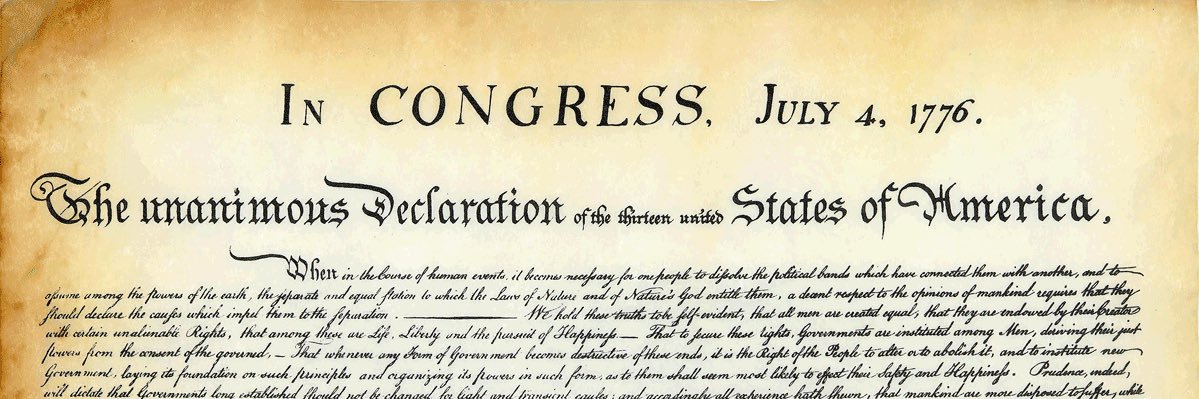 IN CONGRESS, JULY 4, 1776.
The unanimous Declaration of the thirteen united States of America,
When in the Course of human events, it becomes necessary for one people to dissolve the political bands which have connected them with another, and to
assume among the powers of the earth, the separate and equal station to which the Laws of Nature and of Nature's God entitle them, a decent respect to the opinions of mankind requires that they
should declare the causes which impel them to the separation. ——— We hold these truths to be self-evident, that all men are created equal, that they are endowed by their Creator
with certain unalienable Rights, that among these are Life, Liberty and the pursuit of Happiness.— That to secure these rights, Governments are instituted among Men, deriving their just
powers from the consent of the governed,— That whenever any Form of Government becomes destructive of these ends, it is the Right of the People to alter or to abolish it, and to institute new
Government, laying its foundation on such principles and organizing its powers in such form, as to them shall seem most likely to effect their Safety and Happiness. Prudence, indeed,
will dictate that Governments long established should not be changed for light and transient causes; and accordingly all experience hath shewn, that mankind are more disposed to suffer, while